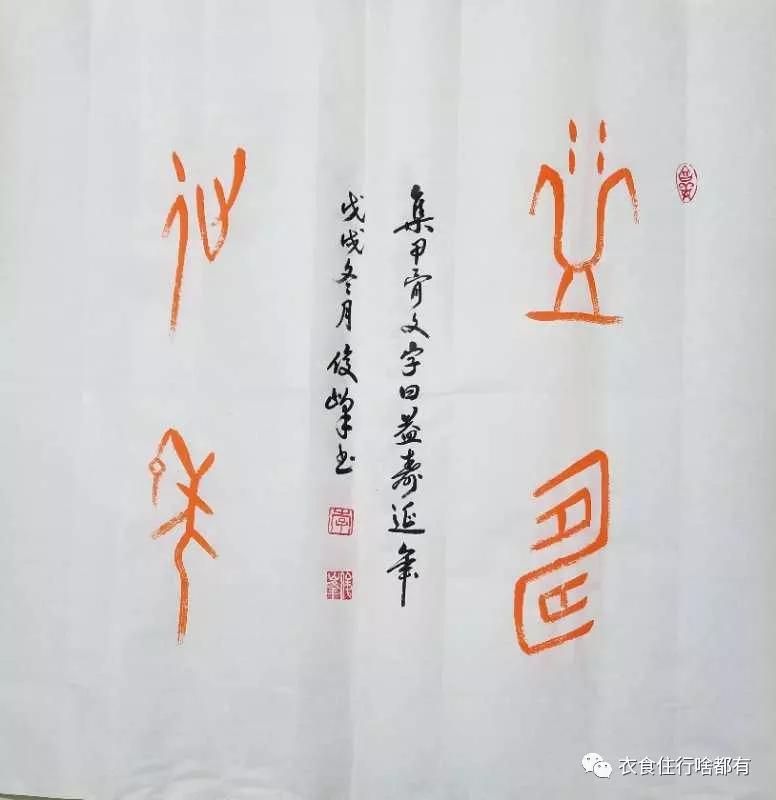 益壽
延年
集甲骨文字曰益壽延年
戊戌冬月俊峰书
李
衣食住行啥都有